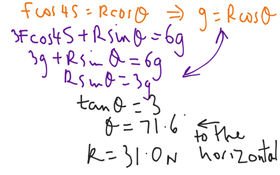 Fcos45 = Rcosθ ⇒ g = Rcosθ
3Fcos45 + Rsinθ = 6g
3g + Rsinθ = 6g
Rsinθ = 3g
tanθ = 3
θ = 71.6 ← to the horizontal
R = 31.0N